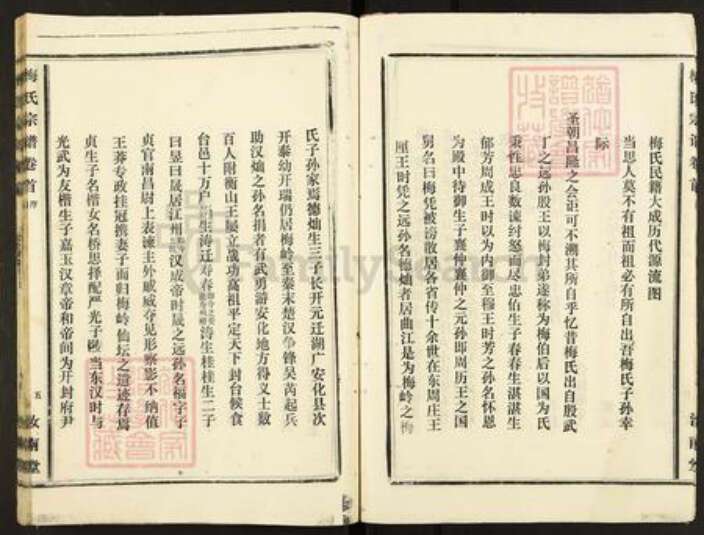 梅氏民籍大成历代源流图
当思人莫不有祖而祖必有所自出吾梅氏子孙幸
际
圣朝昌隆之会讵可不溯其所自乎忆昔梅氏出自殷武
丁之远孙殷王以梅封弟遂称为梅伯后以国为氏
秉性忠良数谏纣怒而尽忠伯生子春春生湛湛生
郁芳周成王时以为内御至穆王时芳之孙名怀恩
为殿中侍御生子襄仲襄仲之元孙即周历王之国
舅名曰梅凭被谤散居各省传十余世在东周庄王
厘王时凭之远孙名德灿者居曲江是为梅岭之梅
氏子孙家焉德灿生三子长开元迁湖广安化县次
开泰幼开瑞仍居梅岭至秦末楚汉争锋吴芮起兵
助汉灿之孙名捐者有武勇游安化地方得义士数
百人附衡山王屡立战功高祖平定天下封台候食
台邑十万户生涛迁寿春涛生桂桂生二子
曰昱曰晟居江州汉成帝时晟之远孙名福字子
贞官南昌尉上表谏主外戚威夺见形察影不纳值
王莽专政挂冠携妻子而归梅岭仙坛之遗迹存焉
贞生子名楷女名桥思择配严光子陵当东汉时与
光武为友楷生子嘉玉汉章帝和帝间为开封府尹
梅氏宗谱卷首
五